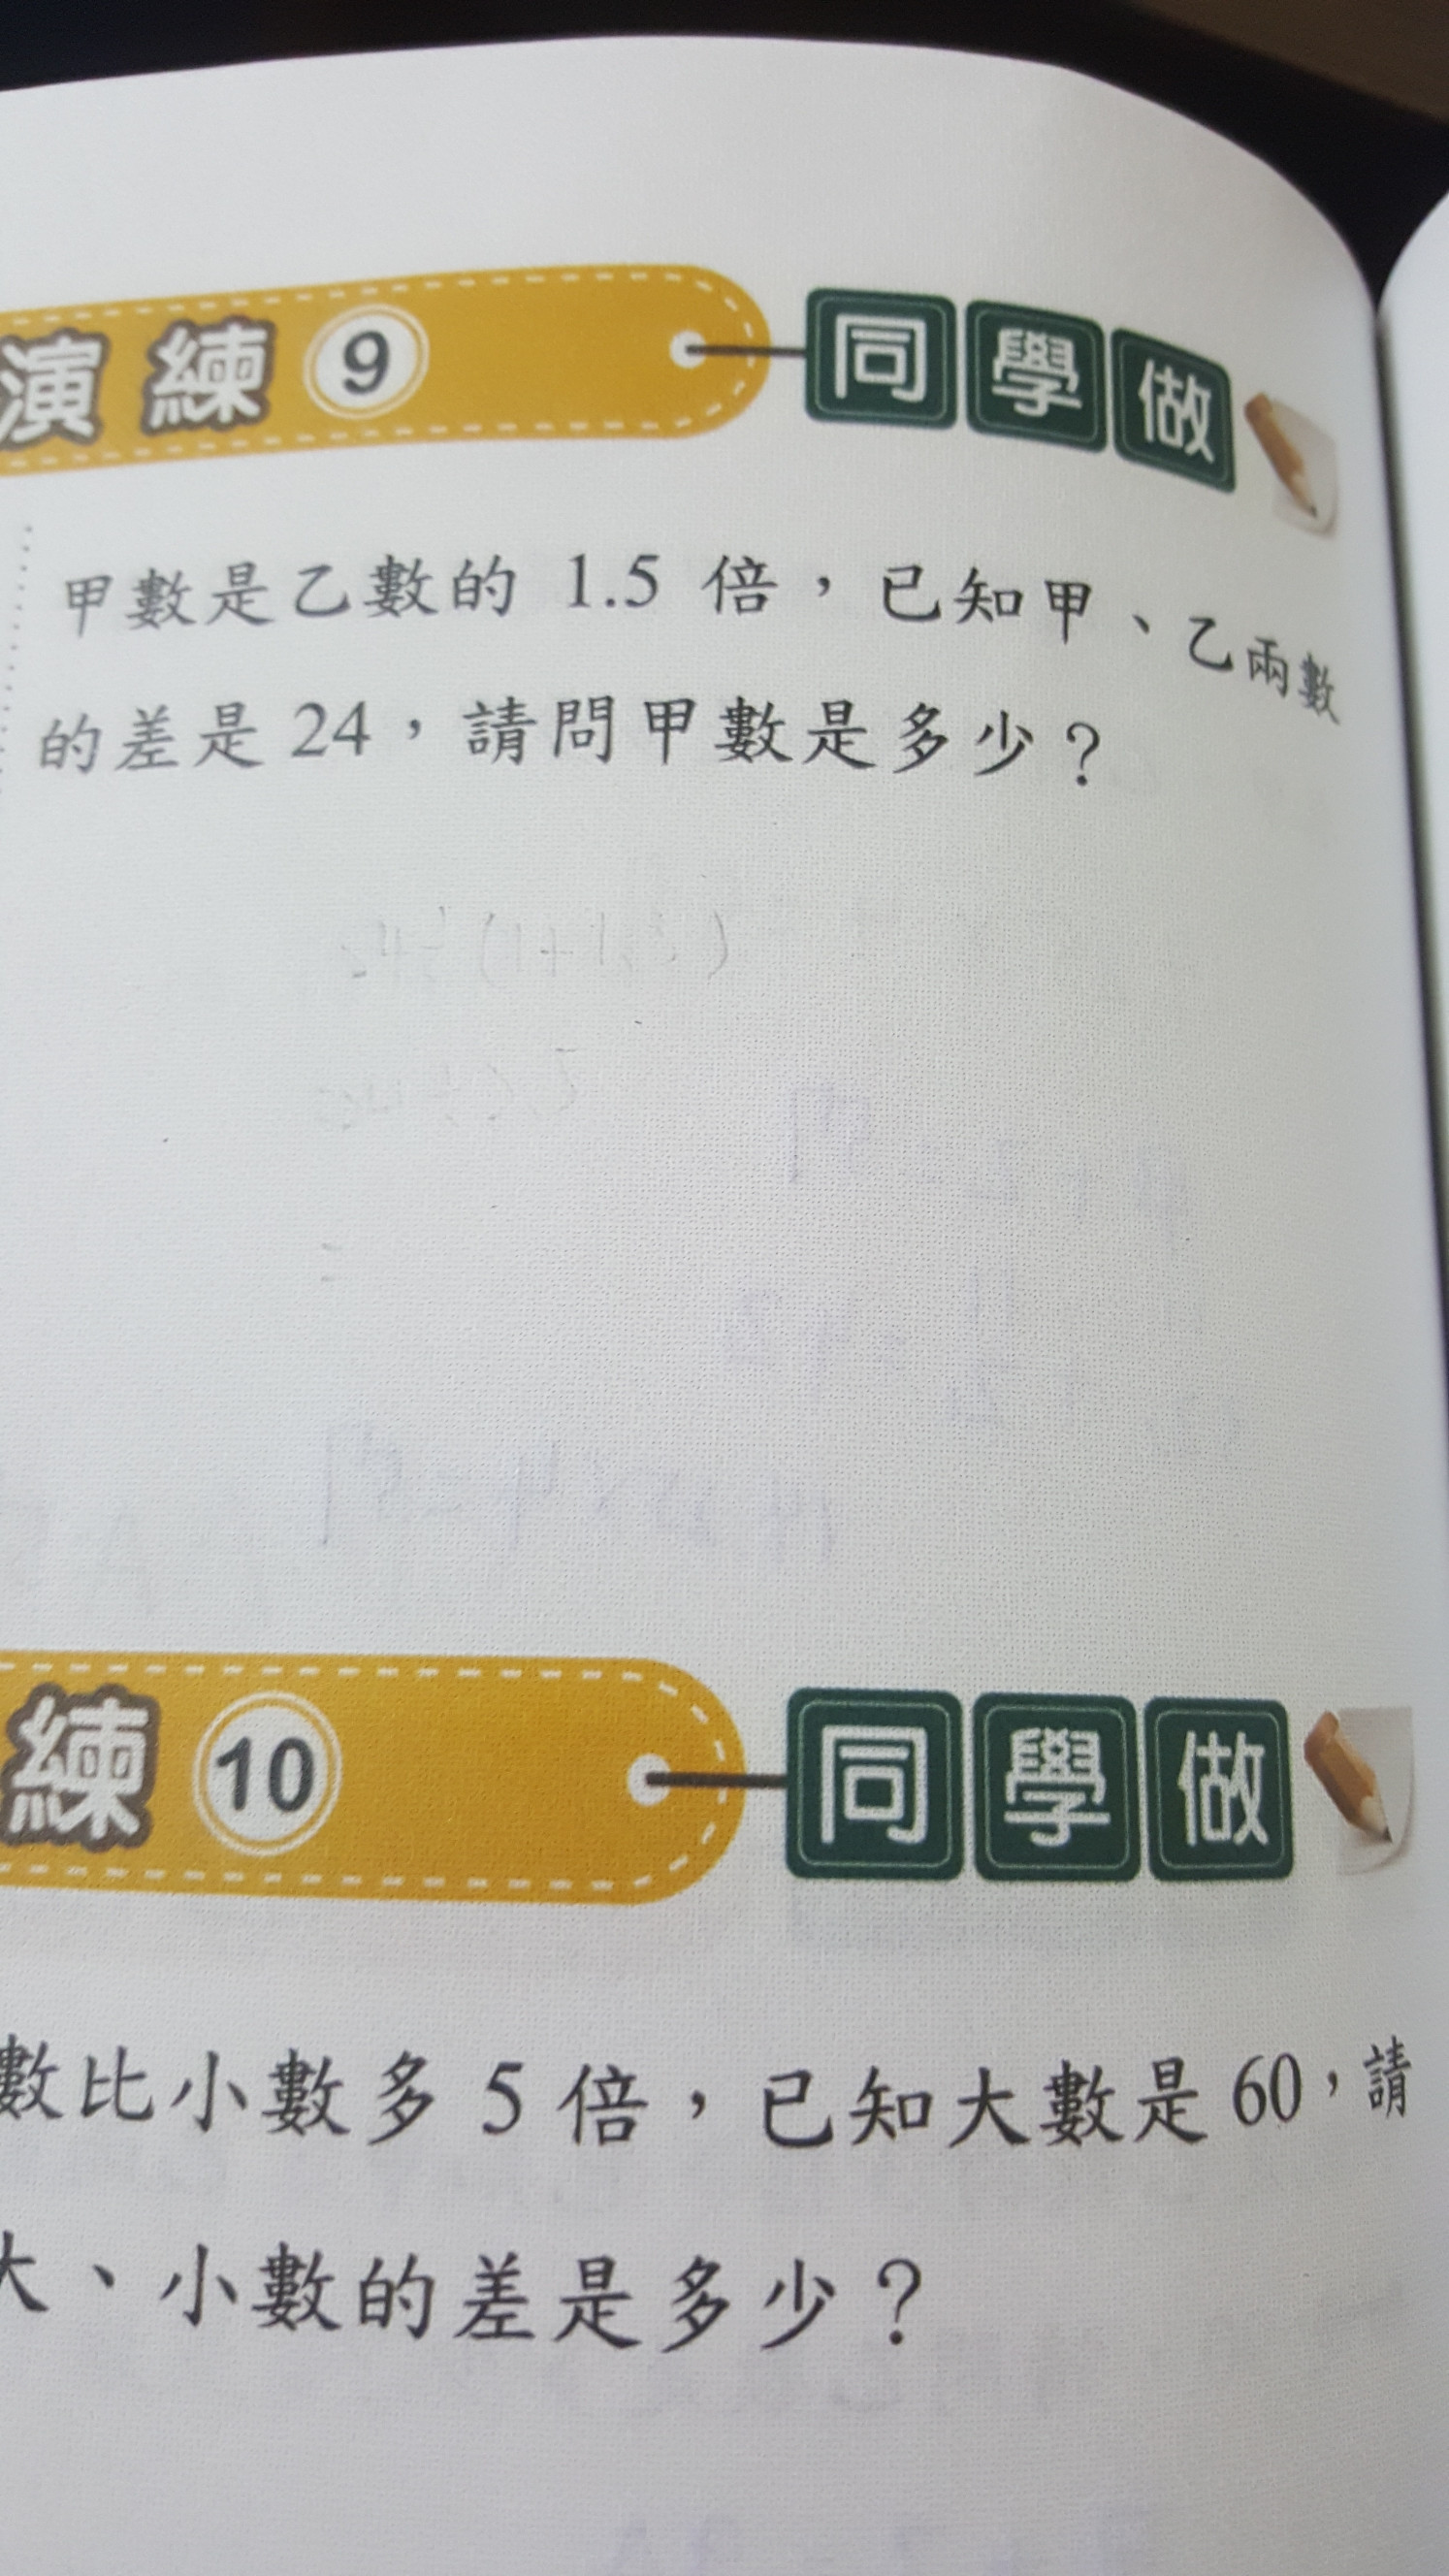 演練9 同學做
甲數是乙數的 1.5 倍，已知甲、乙兩數
的差是 24，請問甲數是多少？
24÷(1+1.5)
練10 同學做
數比小數多 5 倍，已知大數是 60，請
大、小數的差是多少？